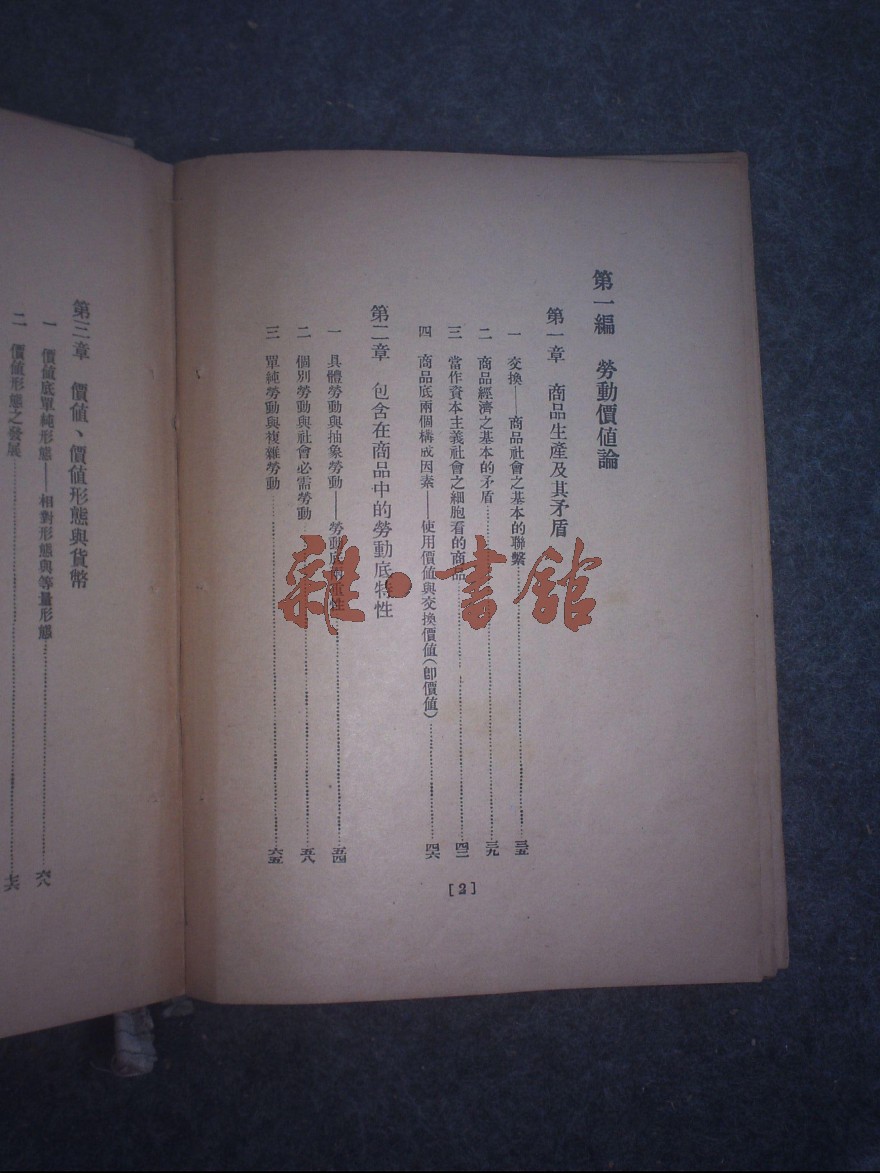 第一編　勞動價値論
第一章　商品生產及其矛盾
一　交換——商品社會之基本的聯繫……三五
二　商品經濟之基本的矛盾……三九
三　當作資本主義社會之細胞看的商品……四二
四　商品底兩個構成因素——使用價値與交換價値(卽價値)……四六
第二章　包含在商品中的勞動底特性
一　具體勞動與抽象勞動——勞動底兩重性……五四
二　個別勞動與社會必需勞動……五八
三　單純勞動與複雜勞動……六五
[2]
第三章　價値、價値形態與貨幣
一　價値底單純形態——相對形態與等量形態……六八
二　價値形態之發展……七六
雜·書館